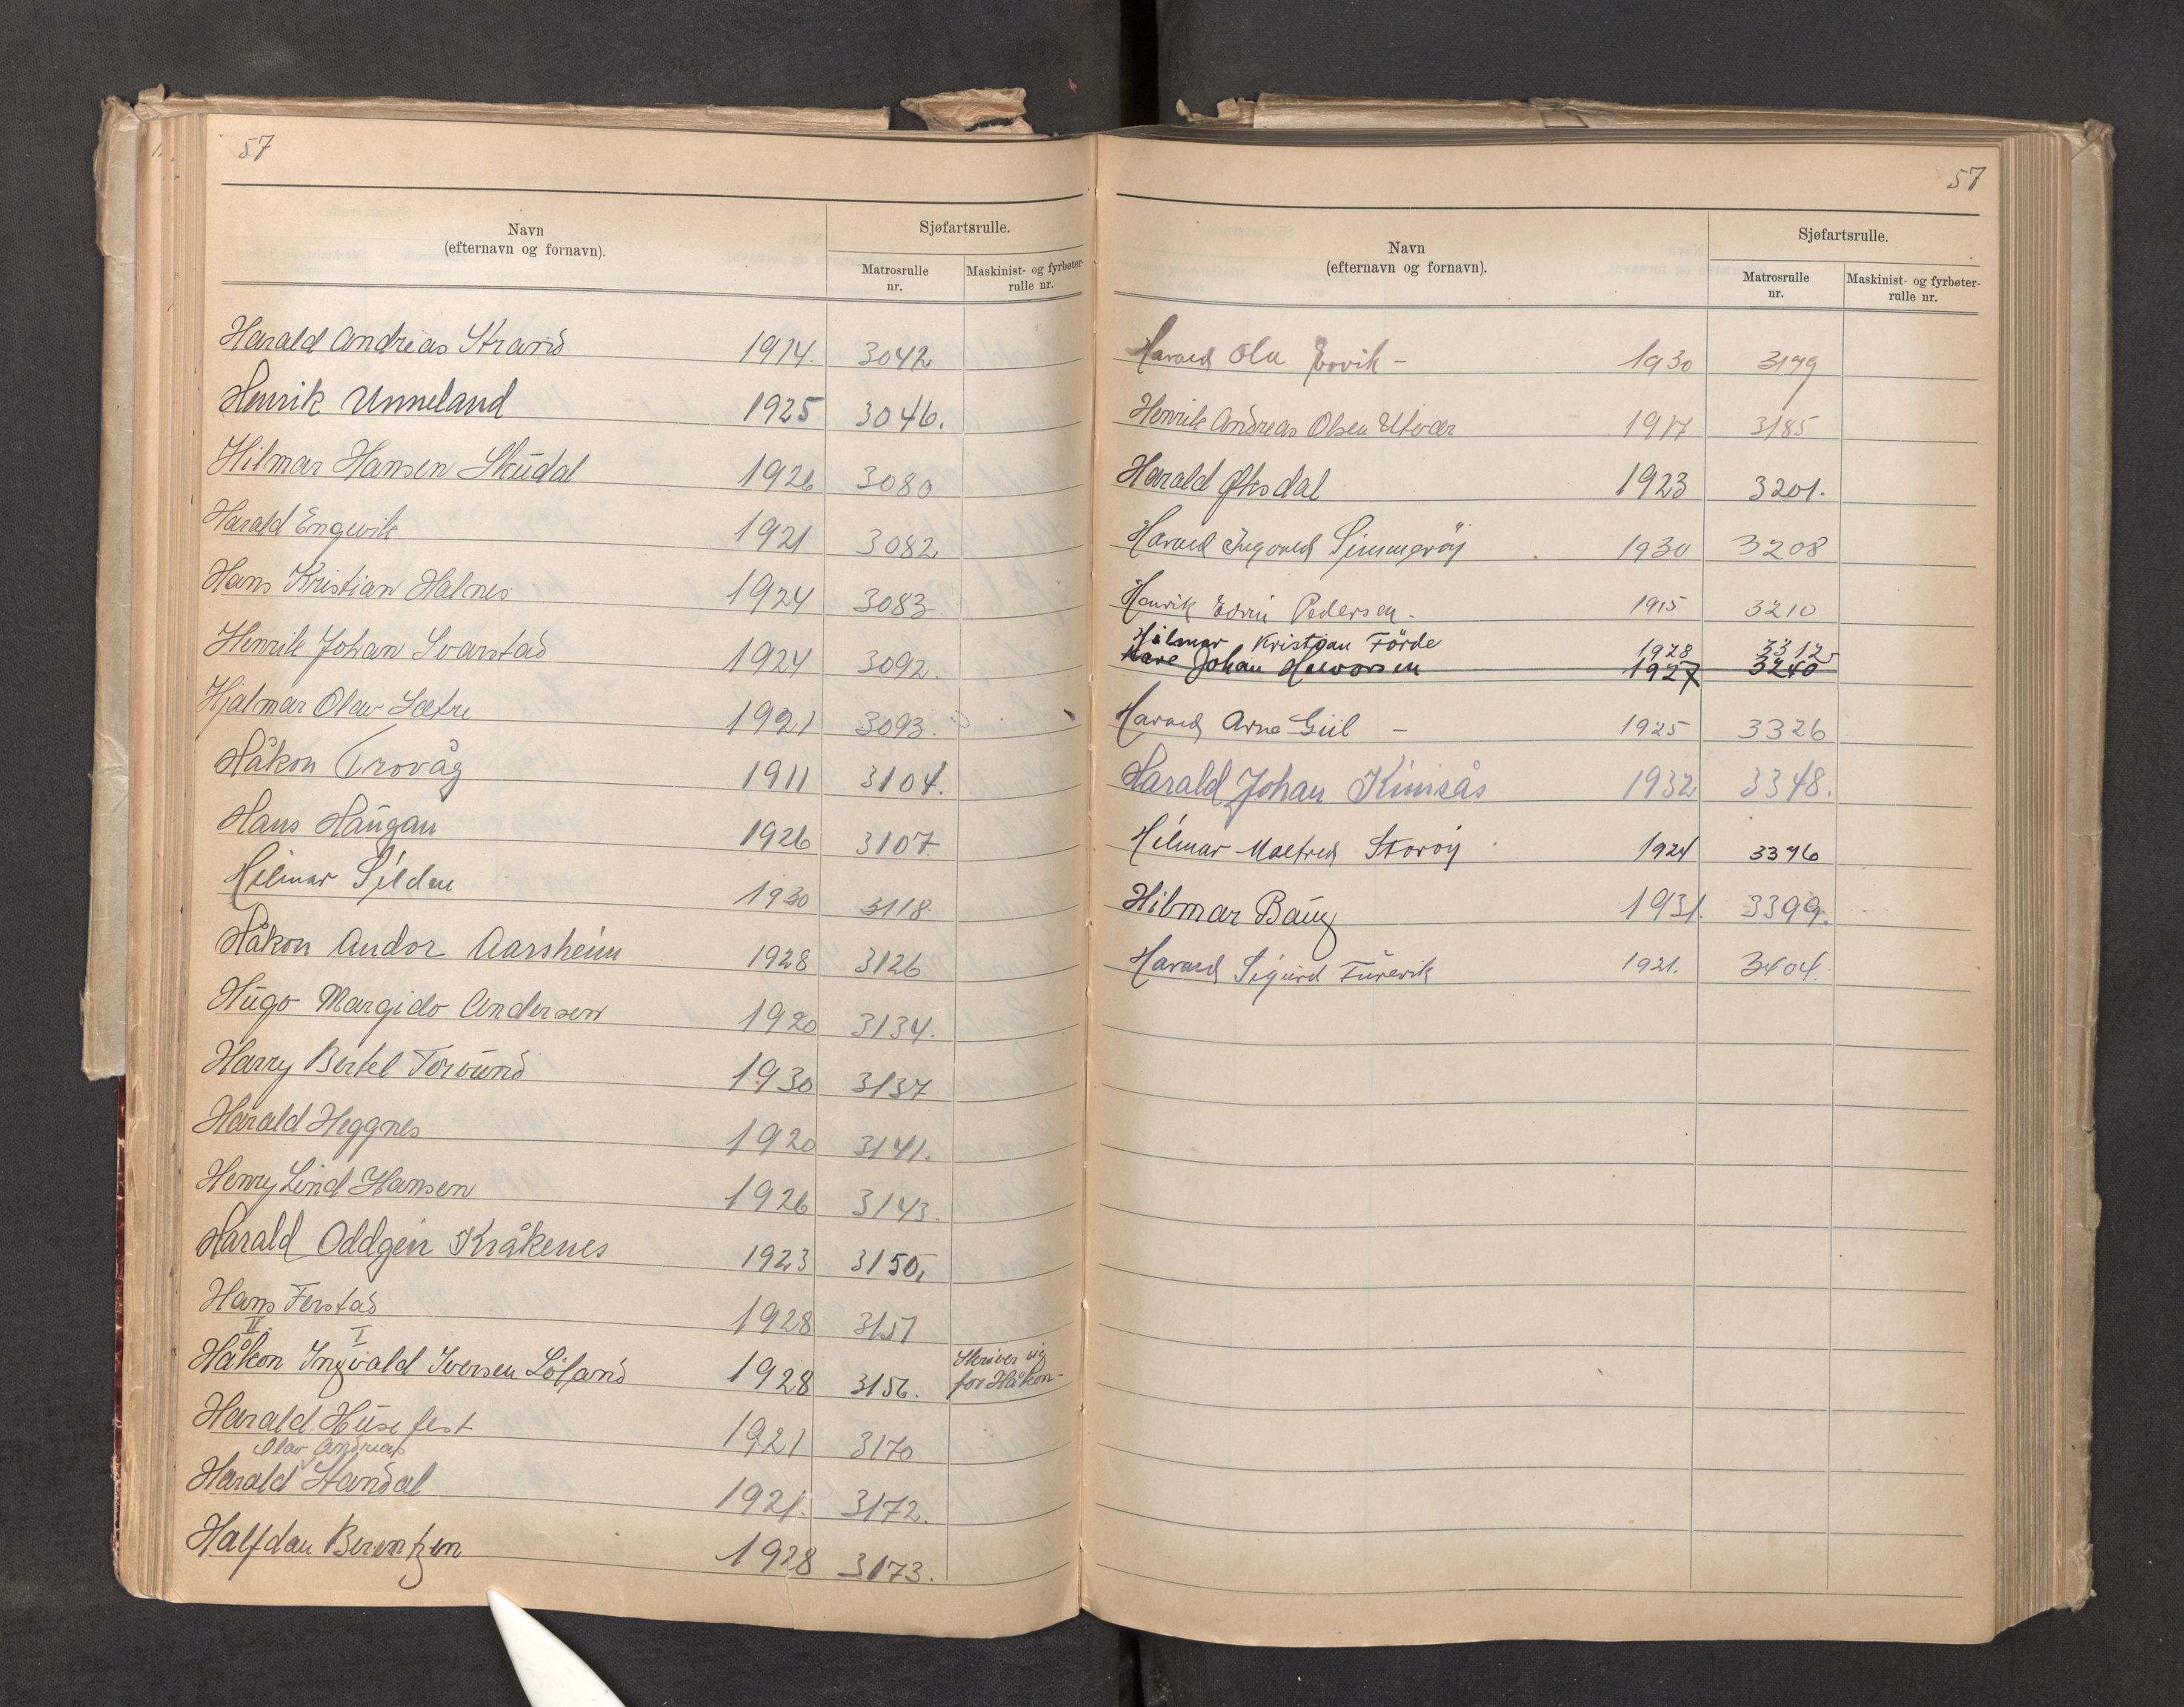 57
Navn
(efternavn og fornavn).
Sjøfartsrulle.
Matrosrulle
nr.
Maskinist- og fyrbøter-
rulle nr.
Harald Andreas Strand 1914. 3042
Henrik Unneland 1925 3046.
Hilmar Hansen Skudal 1926 3080
Harald Engevik 1921 3082
Hans Kristian Halnes 1924 3083
Henrik Johan Svarstad 1924 3092.
Hjalmar Olav Sætre 1921 3093.
Håkon Trovåg 1911 3104.
Hans Haugan 1926 3107
Hilmar Silden 1930 3118.
Håkon Andor Aarsheim 1928 3126
Hugo Margido Andersen 1920 3134.
Harry Bertel Torsund 1930 3137
Harald Heggnes 1920 3141.
Henry Lind Hansen 1926 3143.
Harald Oddgeir Kråkenes 1923 3150,
Hans Ferstad 1928 3151
II I
Håkon Ingvald Iversen Löland 1928 3156. Skriver sig
for Håkon-
Harald Husefest 1921 3170
Olav Andreas
Harald Standal 1921. 3172.
Halfdan Berentzen 1928 3173.
57
Navn
(efternavn og fornavn).
Sjøfartsrulle.
Matrosrulle
nr.
Maskinist- og fyrbøter-
rulle nr.
Harald Ola - 1930 3179
Henrik Andreas Olsen Utvær 1917 3185
Harald Øksdal 1923 3201.
Harald Ingvald 1930 3208
Henrik Pedersen - 1915 3210
Hilmar Kristian Förde 1928 3312
Johan Halvorsen 1927 3240
Harald Arne Giil - 1925 3326
Harald Johan Kinsås 1932 3348.
Hilmar Malfred Storöy 1924 3396
Hilmar Baug 1931. 3399.
Harald Sigurd Furevik 1921. 3404.